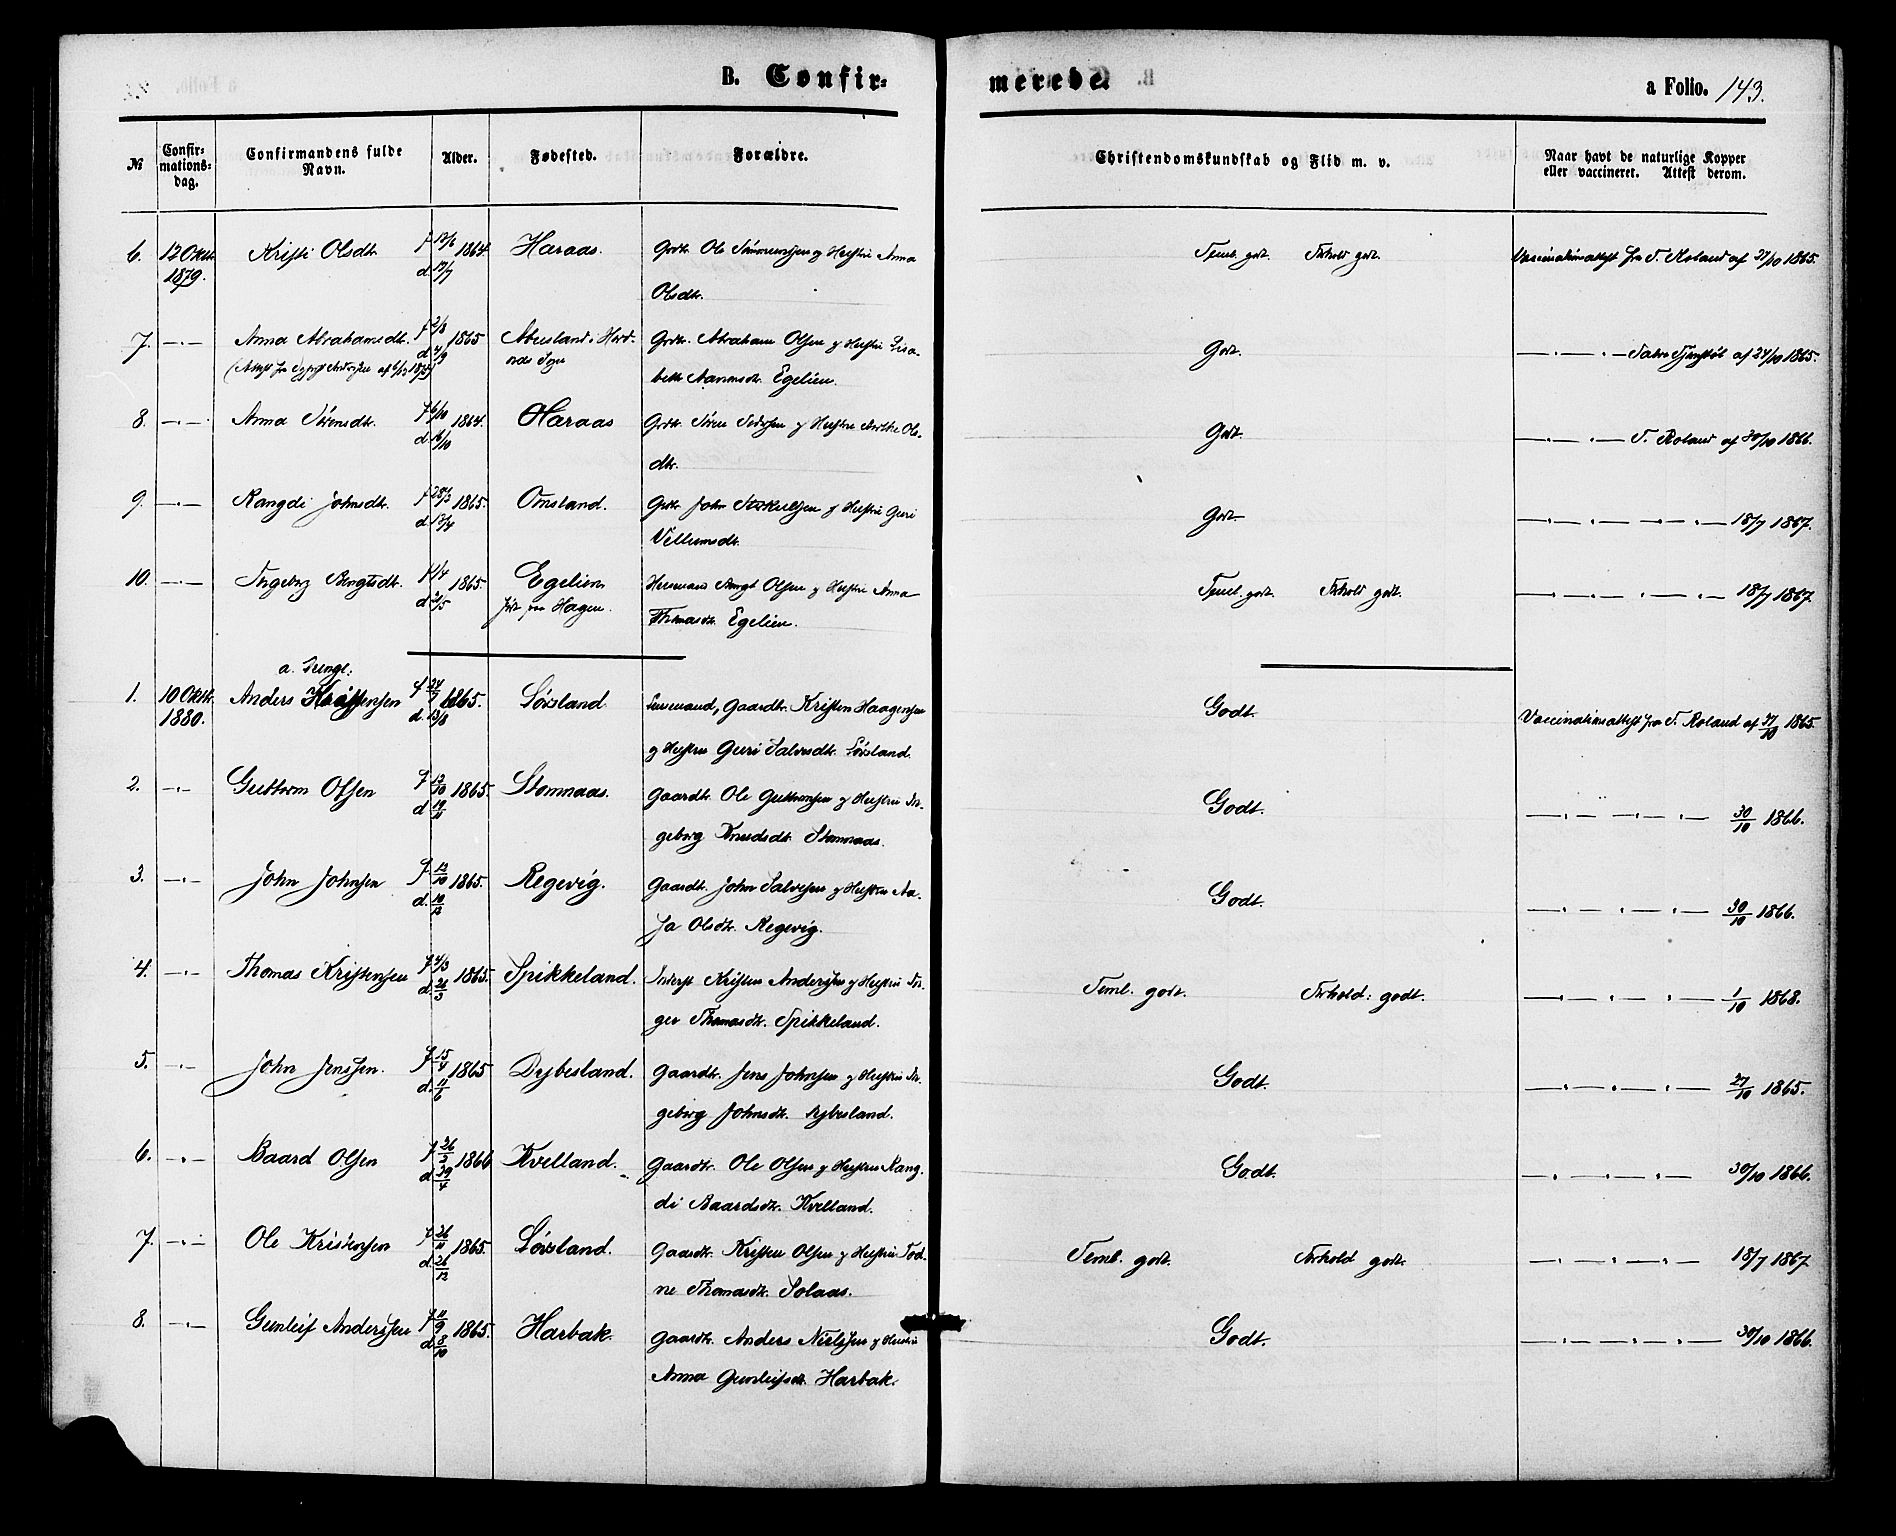 B. Confir=
merede.
a Folio. 143.
№
Confir=
mations=
dag.
Confirmandens fulde
Navn.
Alder.
Fødested.
Forældre.
Christendomskundskab og Flid m. v.
Naar havt de naturlige Kopper
eller vaccineret. Attest derom.
6. 12 Oktr. 1879. Kristi Olsdtr. f 12/6 1864. d 17/7 Haraas. Grdtr. Ole Simmensen og Hustru Anna
Olsdtr.
Teml. godt. Forhold godt. Vaccinationsattest fra T. Roland af 27/10 1865.
7. —"— Anna Abrahamsdtr. f 2/8 1865 d 4/9 Aabusland i Grdtr. Abraham Olsen og Hustru Lisa-
beth Egelien.
Godt. —"— af 27/10 1865.
8. —"— Anna Sørensdtr. f 6/10 1864. d 16/10 Haraas Grdtr. Søren og Hustru Ols-
dtr.
Godt. —"— T. Roland af 30/10 1866.
9. —"— Rangdi Johnsdtr. f 28/3 1865. d 17/4 Omsland. Grdtr. John og Hustru Guri
Villumsdtr.
Godt. —"— 18/7 1867.
10. —"— Ingeborg Bengtsdtr. f 1/4 1865. d 2/5 Egelien Husmand Bengt Olsen og Hustru Anna
født paa Hagen. Thomasdtr. Egelien.
Teml. godt. Forhold godt. —"— 18/7 1867.
a. Drenge:
1. 10 Oktr. 1880. Anders Kristensen f 24/7 1865. d. 13/8 Lørsland Lensmand, Gaardtr. Kristen Haagensen
og Hustru Guri Salvesdtr. Lørsland.
Godt. Vaccinationsattest fra T. Roland af 27/10 1865.
2. —"— Guttorm Olsen f 12/10 1865. d 19/11 Stomnaas. Gaardtr. Ole Guttormsen og Hustru In-
geborg Knudsdtr. Stomnaas.
Godt. —"— 30/10 1866.
3. —"— John Johnsen f 13/10 1865. d. 10/12 Regevig. Gaardtr. John Salvesen og Hustru Aa-
sa Olsdtr. Regevig.
Godt. —"— 30/10 1866.
4. —"— Thomas Kristensen f 4/3 1865. d. 26/3 Spikkeland. Inderst Kristen Andersen og Hustru In-
ger Thomasdtr. Spikkeland.
Teml. godt. Forhold: godt. —"— 1/10 1868.
5. —"— John Jenssen. f 15/4 1865 d. 11/6 Dybesland. Gaardtr. Jens Johnsen og Hustru In-
geborg Johnsdtr. Dybesland.
Godt. —"— 27/10 1865.
6. —"— Baard Olsen f 26/3 1866 d 29/4 Kvelland. Gaardtr. Ole Olsen og Hustru Rang-
di Baardsdtr. Kvelland.
Godt. —"— 30/10 1866.
7. —"— Ole Kristensen f 26/11 1865. d. 26/12 Lørsland. Gaardtr. Kristen Olsen og Hustru Tod-
ne Thomasdtr. Solaas.
Teml. godt. Forhold godt. —"— 18/7 1867
8. —"— Gunleif Andersen f 11/9 1865. d 8/10 Harbak. Gaardtr. Anders Nielssen og Hustru
Anna Gunleifsdtr. Harbak.
Godt. —"— 30/10 1866.